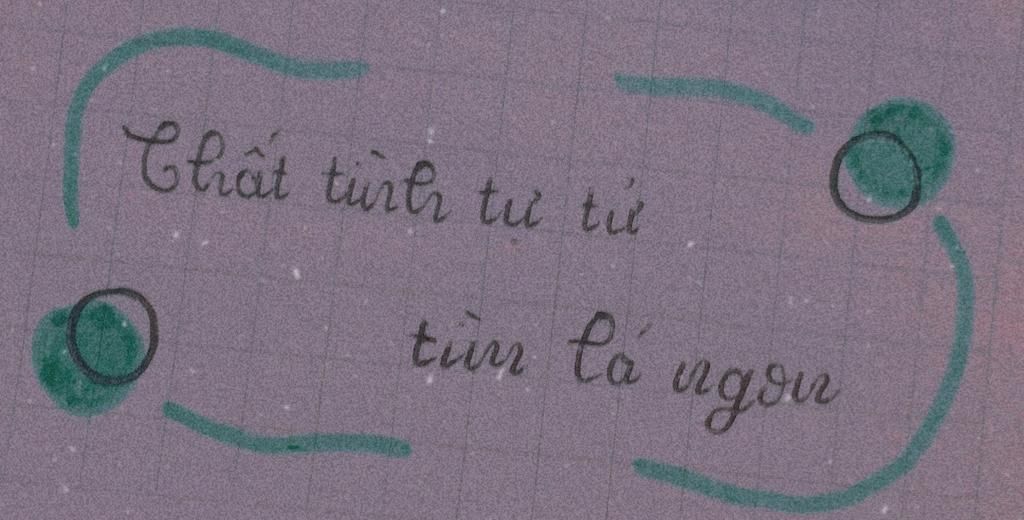 Thất tình tư tử
tìm lá ngon